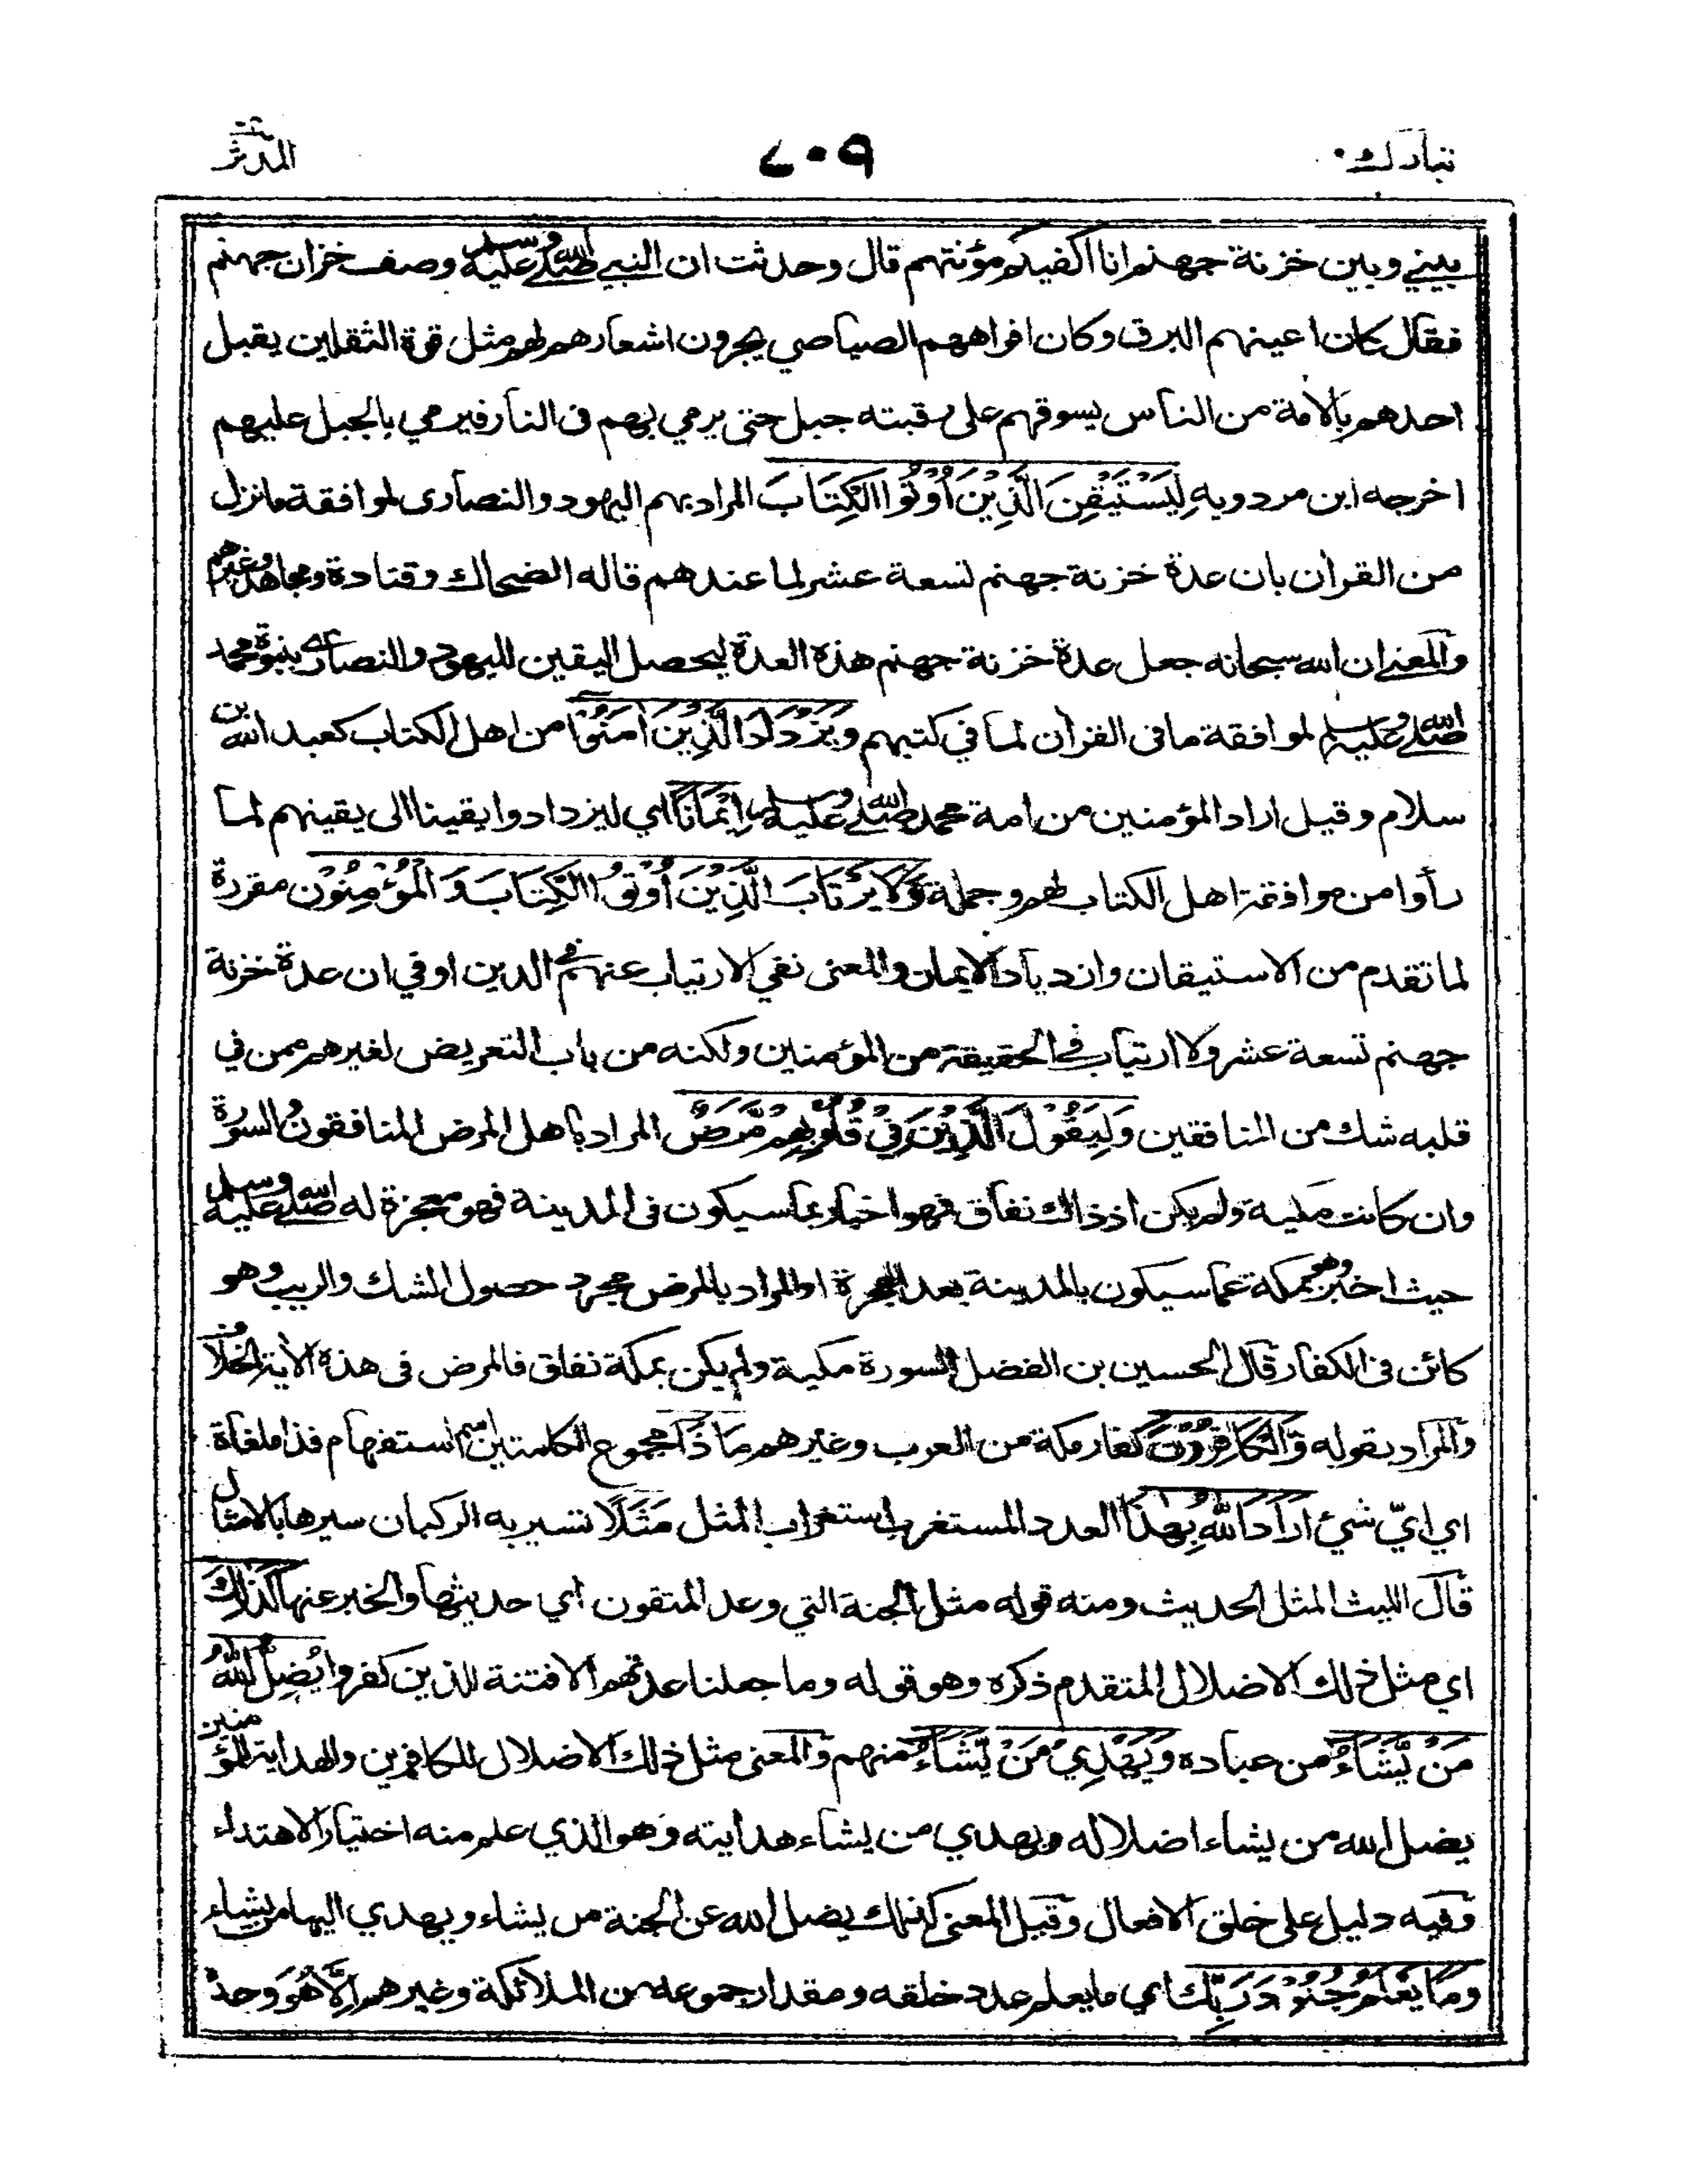 تبارك
٤٠٩
المدثر
بيني وبين خزنة جهنم انا اكفيكم مؤنتهم قال وحدثت ان النبي صلى الله عليه وسلم وصف خزان جهنم
فقال كان اعينهم البرق وكان افواههم الصياصي يجرون اشعارهم لهم مثل قوة الثقلين يقبل
احدهم بالامة من الناس يسوقهم على رقبته جبل حتى يرمي بهم فى النار فيرمي بالجبل عليهم
اخرجه ابن مردويه لِيَسْتَيْقِنَ الَّذِيْنَ أُوْتُوا الْكِتَابَ المراد بهم اليهود والنصارى لموافقة مانزل
من القرأن بان عدة خزنة جهنم تسعة عشر لما عندهم قاله الضحاك وقتادة ومجاهد وغيرهم
والمعنى ان الله سبحانه جعل عدة خزنة جهنم هذه العدة ليحصل اليقين لليهود والنصارى بنبوة محمد
صلى الله عليه وسلم لموافقة مافى القرأن لما في كتبهم وَيَزْدَادَ الَّذِيْنَ اٰمَنُوْا من اهل الكتاب كعبد الله بن
سلام وقيل اراد المؤمنين من امة محمد صلى الله عليه وسلم اِيْمَانًا اي ليزدادوا يقينا الى يقينهم لما
رأوا من موافقة اهل الكتاب لهم وجملة وَلَا يَرْتَابَ الَّذِيْنَ أُوْتُوا الْكِتَابَ وَ الْمُؤْمِنُوْنَ مقررة
لما تقدم من الاستيقان وازدياد الايمان والمعنى نفي الارتياب عنهم في الدين او في ان عدة خزنة
جهنم تسعة عشر ولا ارتياب في الحقيقة من المؤمنين ولكنه من باب التعريض لغيرهم ممن في
قلبه شك من المنافقين وَلِيَقُوْلَ الَّذِيْنَ فِيْ قُلُوْبِهِمْ مَّرَضٌ المراد باهل المرض المنافقون والسورة
وان كانت مكية ولم يكن اذ ذاك نفاق فهو اخبار بما سيكون فى المدينة فهو معجزة له صلى الله عليه وسلم
حيث اخبر وهو بمكة عما سيكون بالمدينة بعد الهجرة او المراد بالمرض مجرد حصول الشك والريب وهو
كائن فى الكفار قال الحسين بن الفضل السورة مكية ولم يكن بمكة نفاق فالمرض فى هذه الاية الخلاف
والمراد بقوله وَّالْكَافِرُوْنَ كفار مكة من العرب وغيرهم مَا ذَا مجموع الكلمتين اسم استفهام فذا ملغاة
اي ايّ شيئ اَرَادَ اللهُ بِهٰذَا العدد المستغرب استغراب المثل مَثَلًا تسير به الركبان سيرها بالامثال
قال الليث المثل الحديث ومنه قوله مثل الجنة التي وعد المتقون اي حديثها والخبر عنها كَذٰلِكَ
اي مثل ذلك الاضلال المتقدم ذكره وهو قوله وما جعلنا عدتهم الا فتنة للذين كفروا يُضِلُّ اللهُ
مَنْ يَّشَآءُ من عباده وَيَهْدِيْ مَنْ يَّشَآءُ منهم والمعنى مثل ذلك الاضلال للكافرين والهداية للمؤمنين
يضل الله من يشاء اضلاله ويهدي من يشاء هدايته وهو الذي علم منه اختيار الاهتداء
وفيه دليل على خلق الافعال وقيل المعنى كذلك يضل الله عن الجنة من يشاء ويهدي اليها من يشاء
وَمَا يَعْلَمُ جُنُوْدَ رَبِّكَ اي ما يعلم عدد خلقه ومقدار جموعه من الملائكة وغيرهم اِلَّا هُوَ وحده